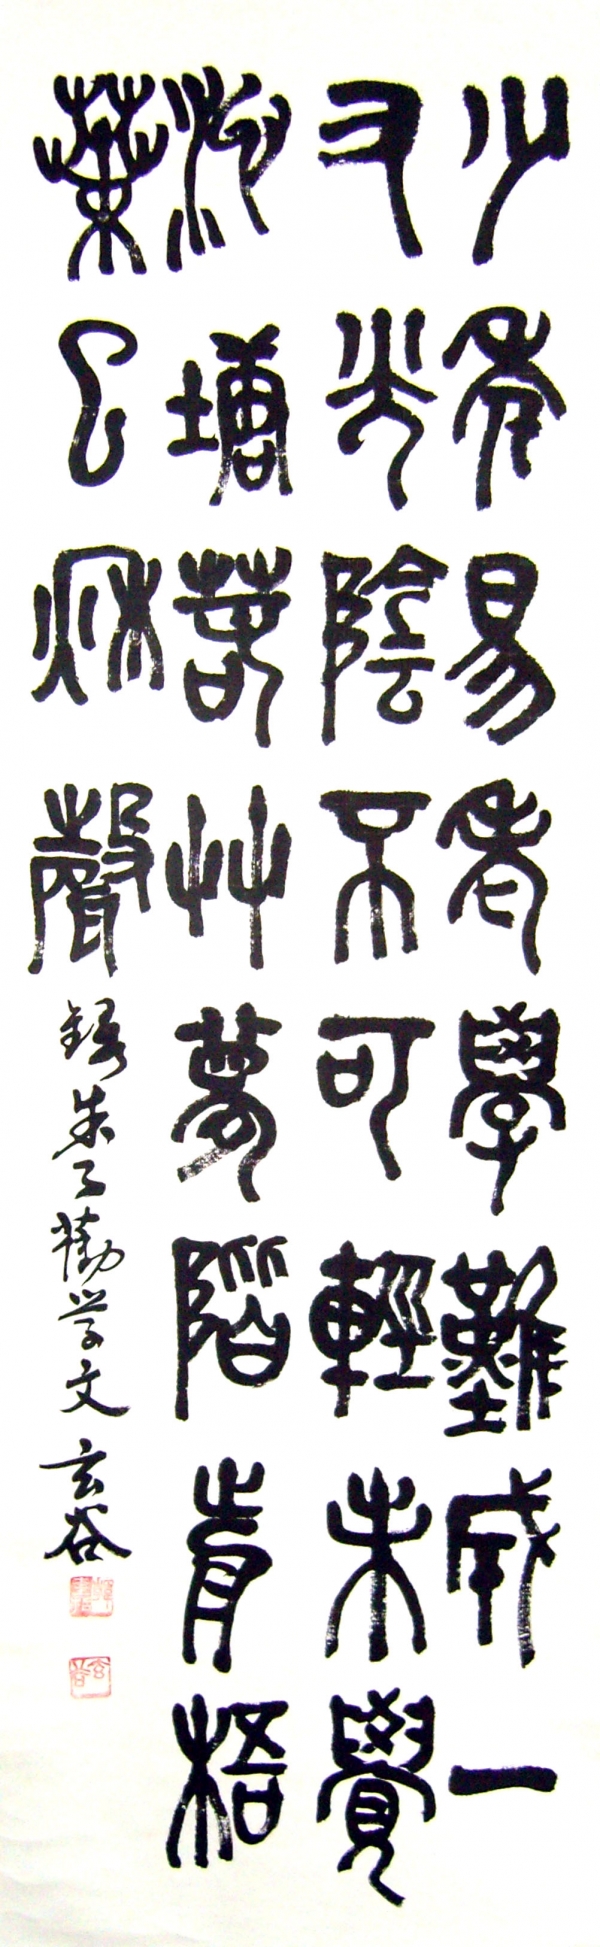 少年易老學難成一
寸光陰不可輕未覺
池塘春草夢階前梧
葉已秋聲
錄朱子勸学文 玄谷